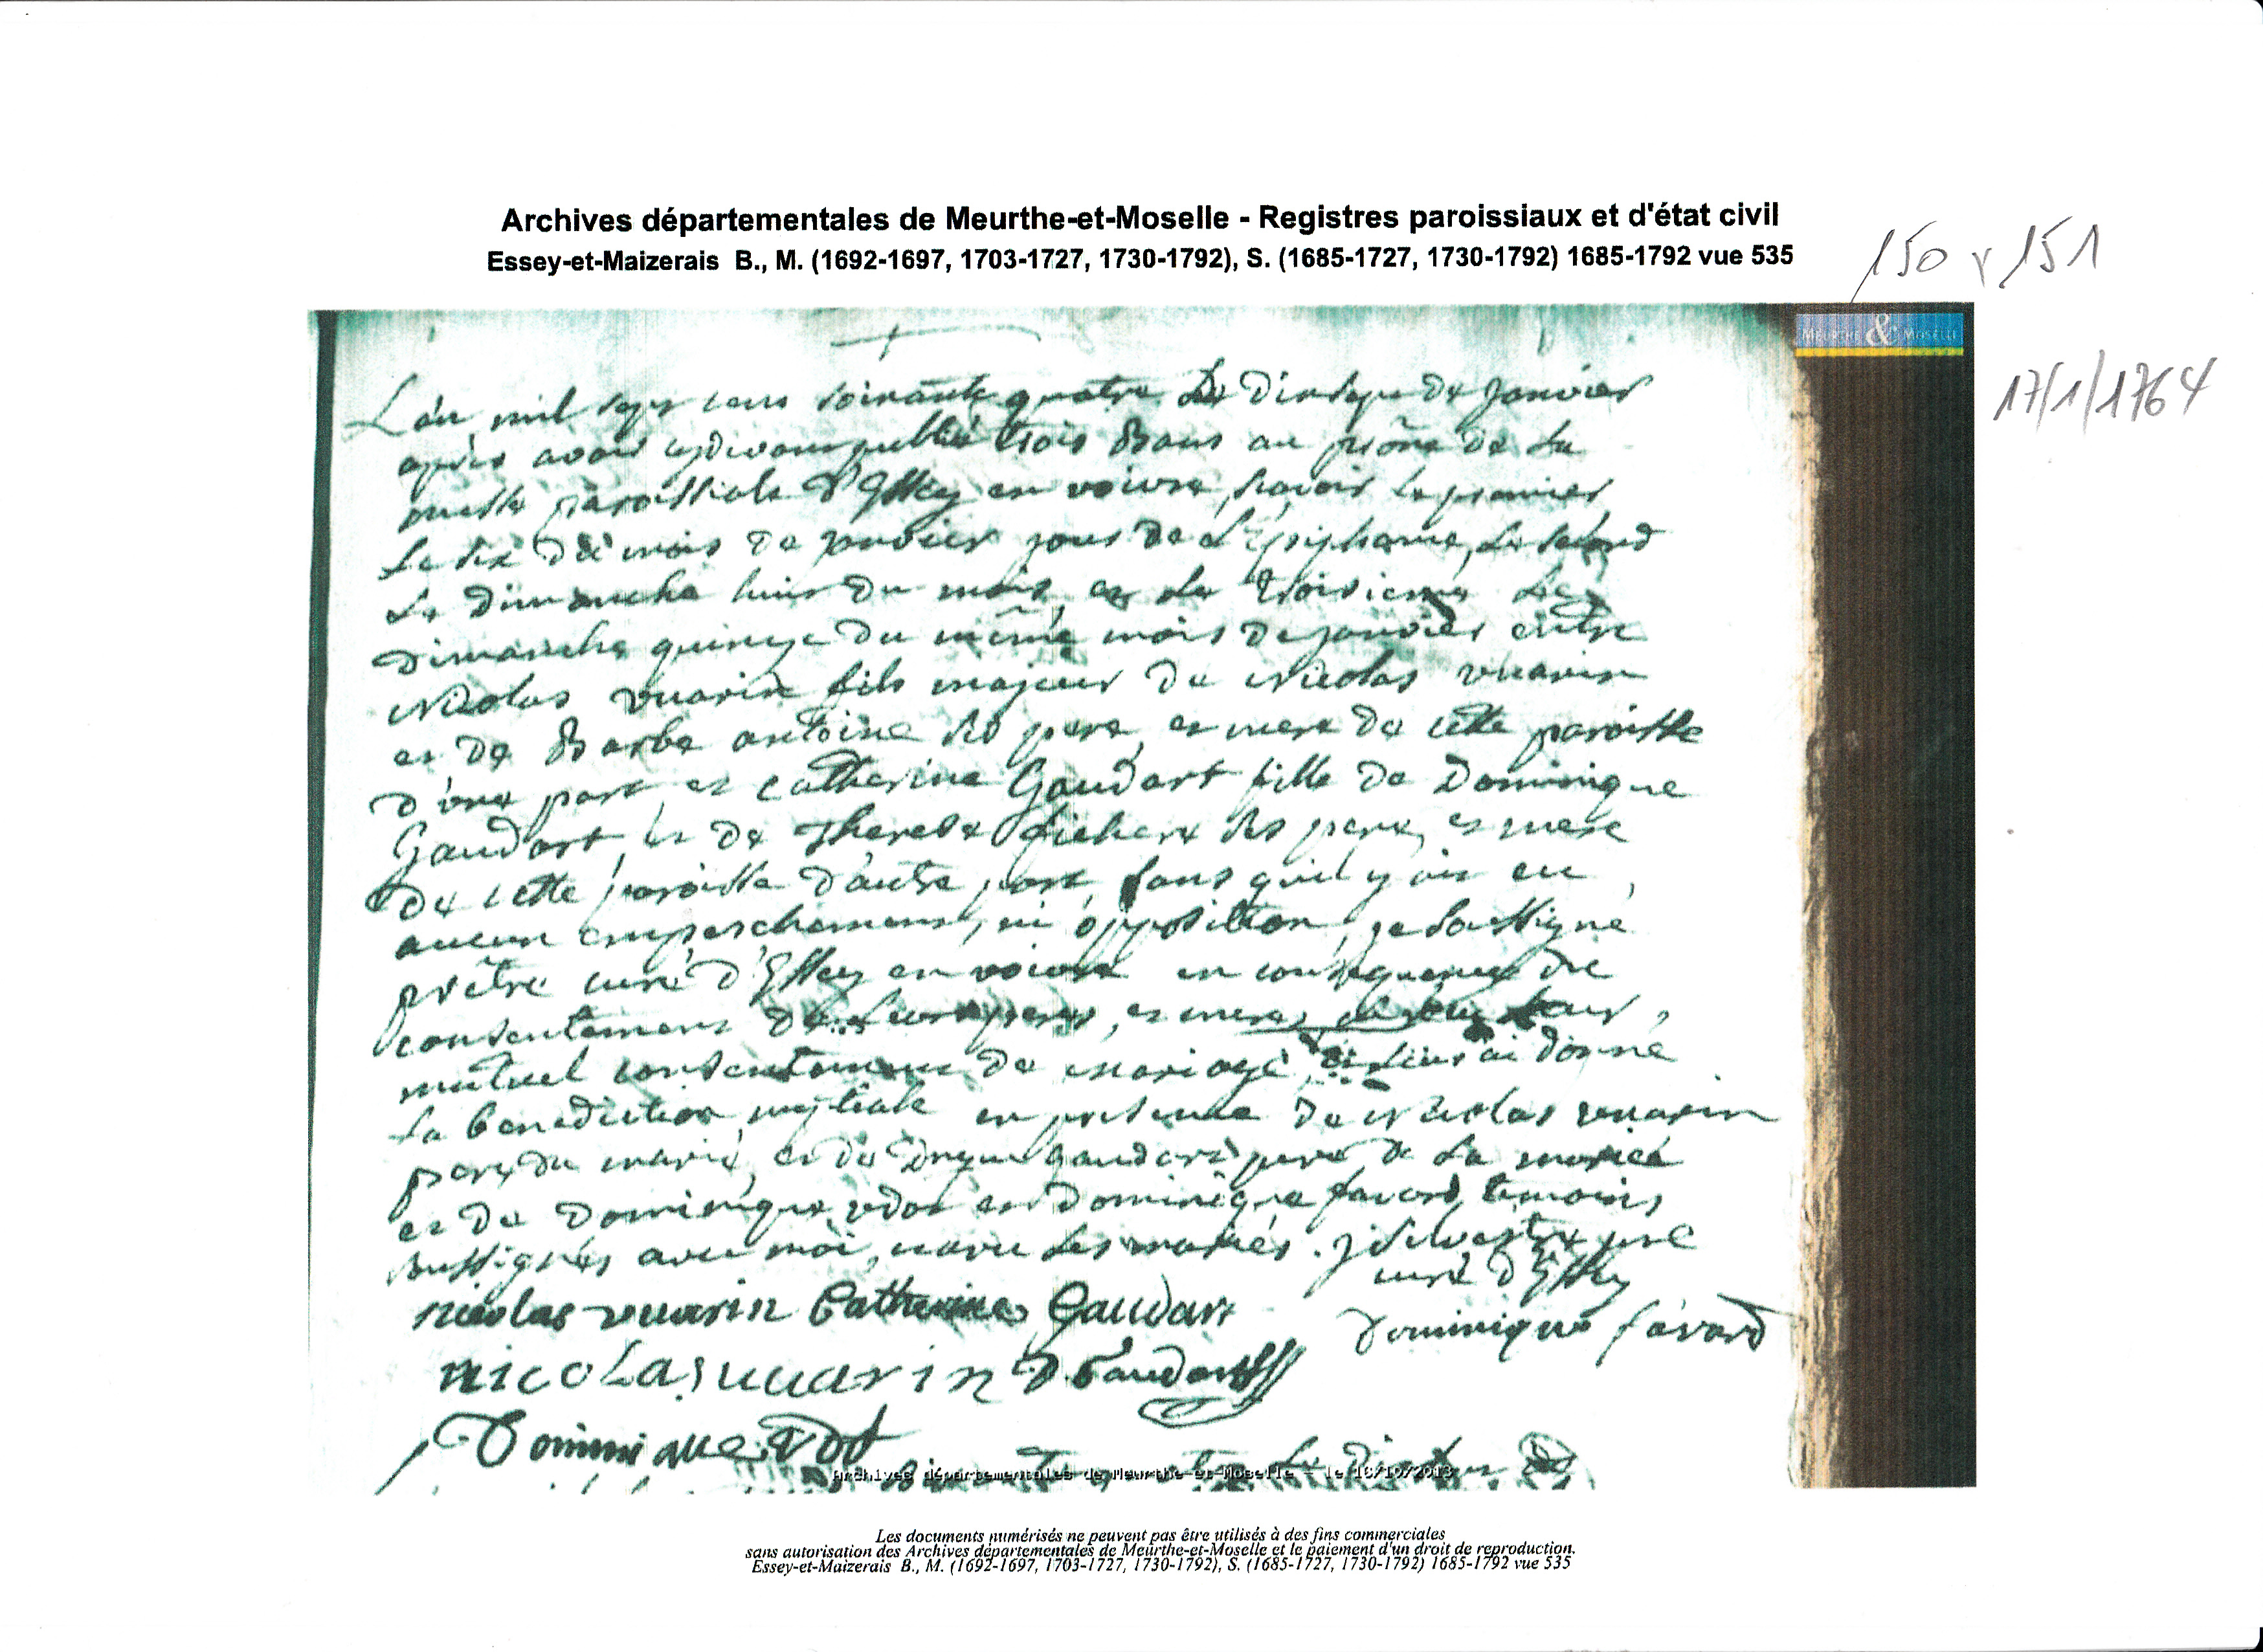 Archives départementales de Meurthe-et-Moselle - Registres paroissiaux et d'état civil
Essey-et-Maizerais B., M. (1692-1697, 1703-1727, 1730-1792), S. (1685-1727, 1730-1792) 1685-1792 vue 535
150 x 151
MEURTHE & MOSELLE
17/1/1764
L'an mil sept cens soixante quatre Le dixsept de Janvier
après avoir cydevant publié trois Bans au prône de La
messe paroissiale d'Essey en voivre, savoir Le premier
Le six du mois de janvier jour de L'Epiphanie, Le second
Le dimanche huit du mois, et Le troisieme Le
dimanche quinze du même mois de janvier entre
Nicolas vuarin fils majeur de Nicolas vuarin
et de Barbe antoine ses pere, et mere de cette paroisse
d'une part, et Catherine Gaudart fille de Dominique
Gaudart, et de Therese ses pere, et mere
de cette paroisse d'autre part, sans qu'il y ait eu
aucun empeschement, ni opposition, je soussigné
prêtre curé d'Essey en voivre en consequence du
consentement de Leurs peres, et meres, de Leur
mutuel consentement de mariage, Leur ai donné
La benediction nuptiale en presence de Nicolas vuarin
pere du marié, et de Gaudart pere de La mariée
et de Dominique vdot et Dominique favard temoins
sussignés avec moi, Les mariés. J Silvestre
curé d'Essey
nicolas vuarin Catherine Gaudart
Dominique favard
nicolas uuarin D. Gaudart
Dominique Vdot
Archives départementales de Meurthe-et-Moselle - le 18/10/2013
Les documents numérisés ne peuvent pas être utilisés à des fins commerciales
sans autorisation des Archives départementales de Meurthe-et-Moselle et le paiement d'un droit de reproduction.
Essey-et-Maizerais B., M. (1692-1697, 1703-1727, 1730-1792), S. (1685-1727, 1730-1792) 1685-1792 vue 535